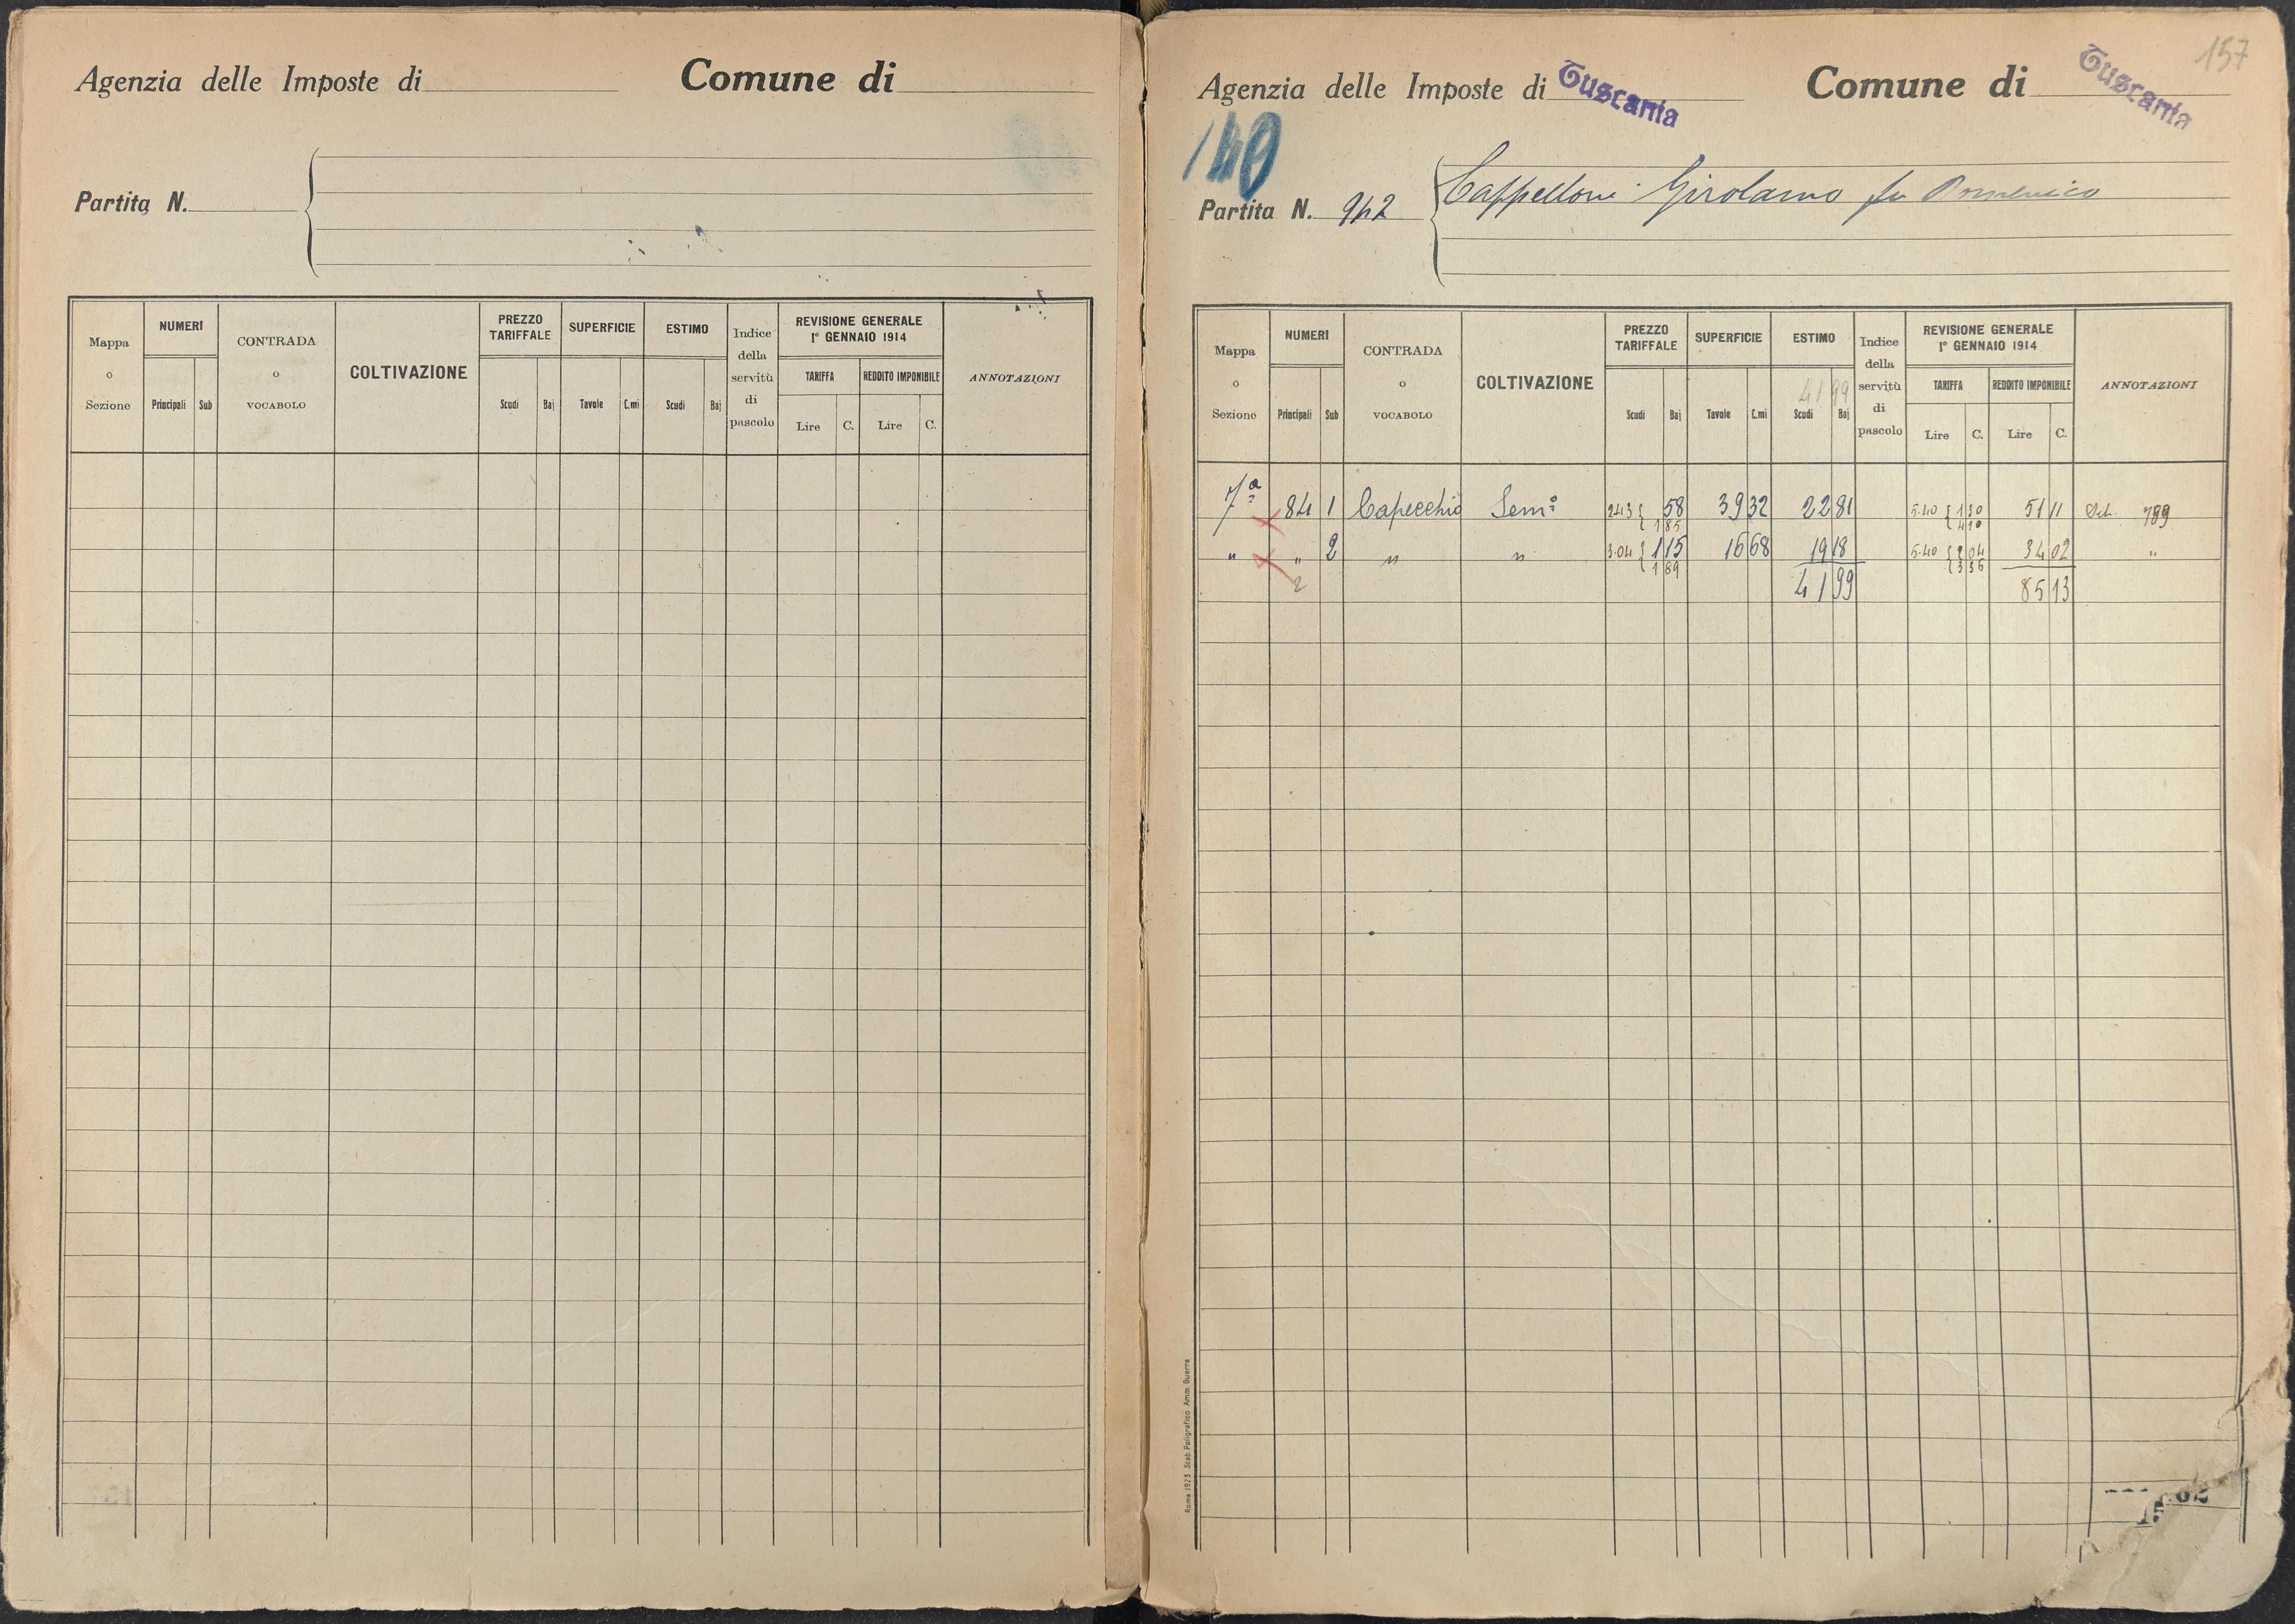 Agenzia delle Imposte di Comune di
Partita N.
Mappa o Sezione
NUMERI
Principali Sub
CONTRADA o VOCABOLO
COLTIVAZIONE
PREZZO TARIFFALE
Scudi Baj
SUPERFICIE
Tavole C.mi
ESTIMO
Scudi Baj
Indice della servitù di pascolo
REVISIONE GENERALE 1º GENNAIO 1914
TARIFFA REDDITO IMPONIBILE
Lire C. Lire C.
ANNOTAZIONI
157
Agenzia delle Imposte di Tuscania Comune di Tuscania
140
Partita N. 942 Cappelloni Girolamo fu Domenico
Mappa o Sezione
NUMERI
Principali Sub
CONTRADA o VOCABOLO
COLTIVAZIONE
PREZZO TARIFFALE
Scudi Baj
SUPERFICIE
Tavole C.mi
ESTIMO
41 99
Scudi Baj
Indice della servitù di pascolo
REVISIONE GENERALE 1º GENNAIO 1914
TARIFFA REDDITO IMPONIBILE
Lire C. Lire C.
ANNOTAZIONI
7ª 84 1 Capecchio Semº 243 { 58 39 32 22 81 5.40 { 1 30 51 11 789
1 85 4 10
" " 2 " " 3.04 { 1 15 16 68 19 18 5.40 { 2 04 34 02 "
1 89 3 36
2 41 99 85 13
Roma 1923 Stab. Poligrafico Amm. Guerra